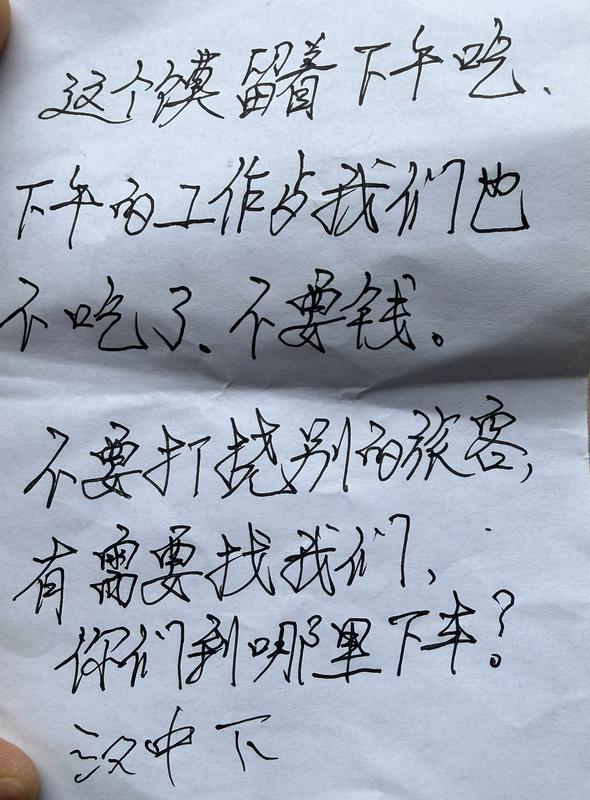 这个馍留着下午吃、
下午的工作占我们也
不吃了、不要钱。
不要打挠别的旅客,
有需要找我们,
你们到哪里下车?
汉中下